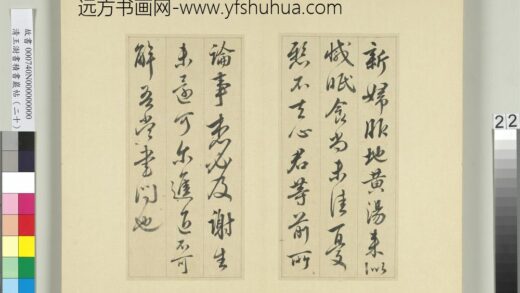 远方书画网-www.yfshuhua.com
新婦服地黃湯來似
減眠食尚未佳憂
懸不去心君等前所
論事想必及謝生
未還可尔進退不可
解吾當書問也
故書 000740N000000000
清王澍書積書巖帖(二十)
22